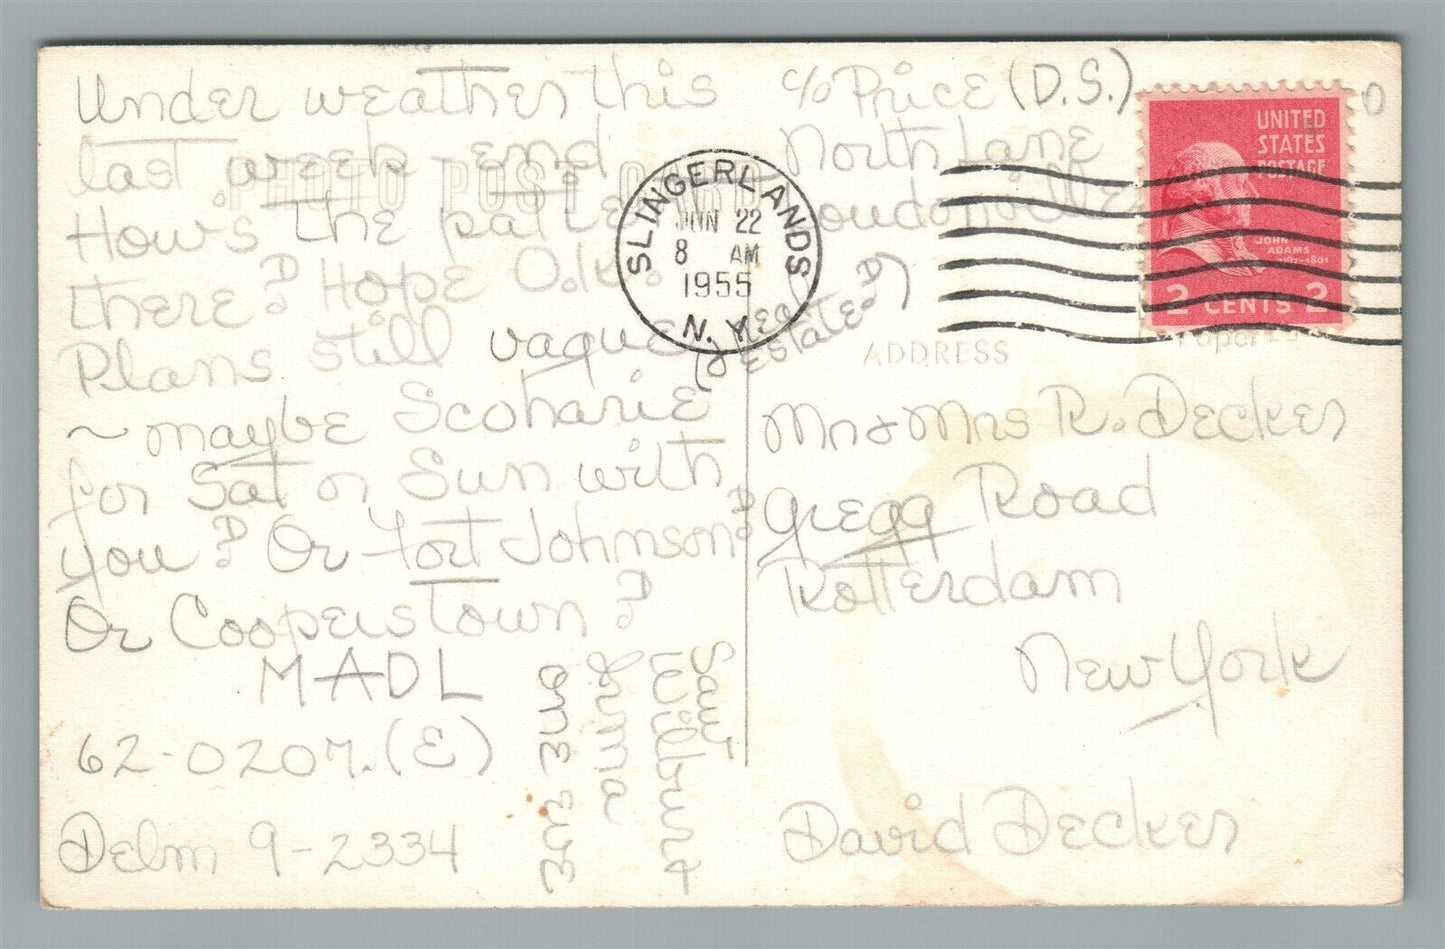 Under weather this
last week end
How's the patient
there? Hope O.K.
Plans still vague
~ maybe Scoharie
for Sat or Sun with
you? Or Fort Johnson?
Or Cooperstown?
MADL
62-0207. (E)
Delm 9-2334
Saw
Wilbur &
Anna
c/o Price (D.S.)
North Lane
Loudonville
(Real
Estate?)
PHOTO POST CARD
SLINGERLANDS
JUN 22
8 AM
1955
N. Y.
UNITED
STATES
POSTAGE
JOHN
ADAMS
1797-1801
2 CENTS 2
ADDRESS
Mr & Mrs R. Decker
Gregg Road
Rotterdam
New York
David Decker